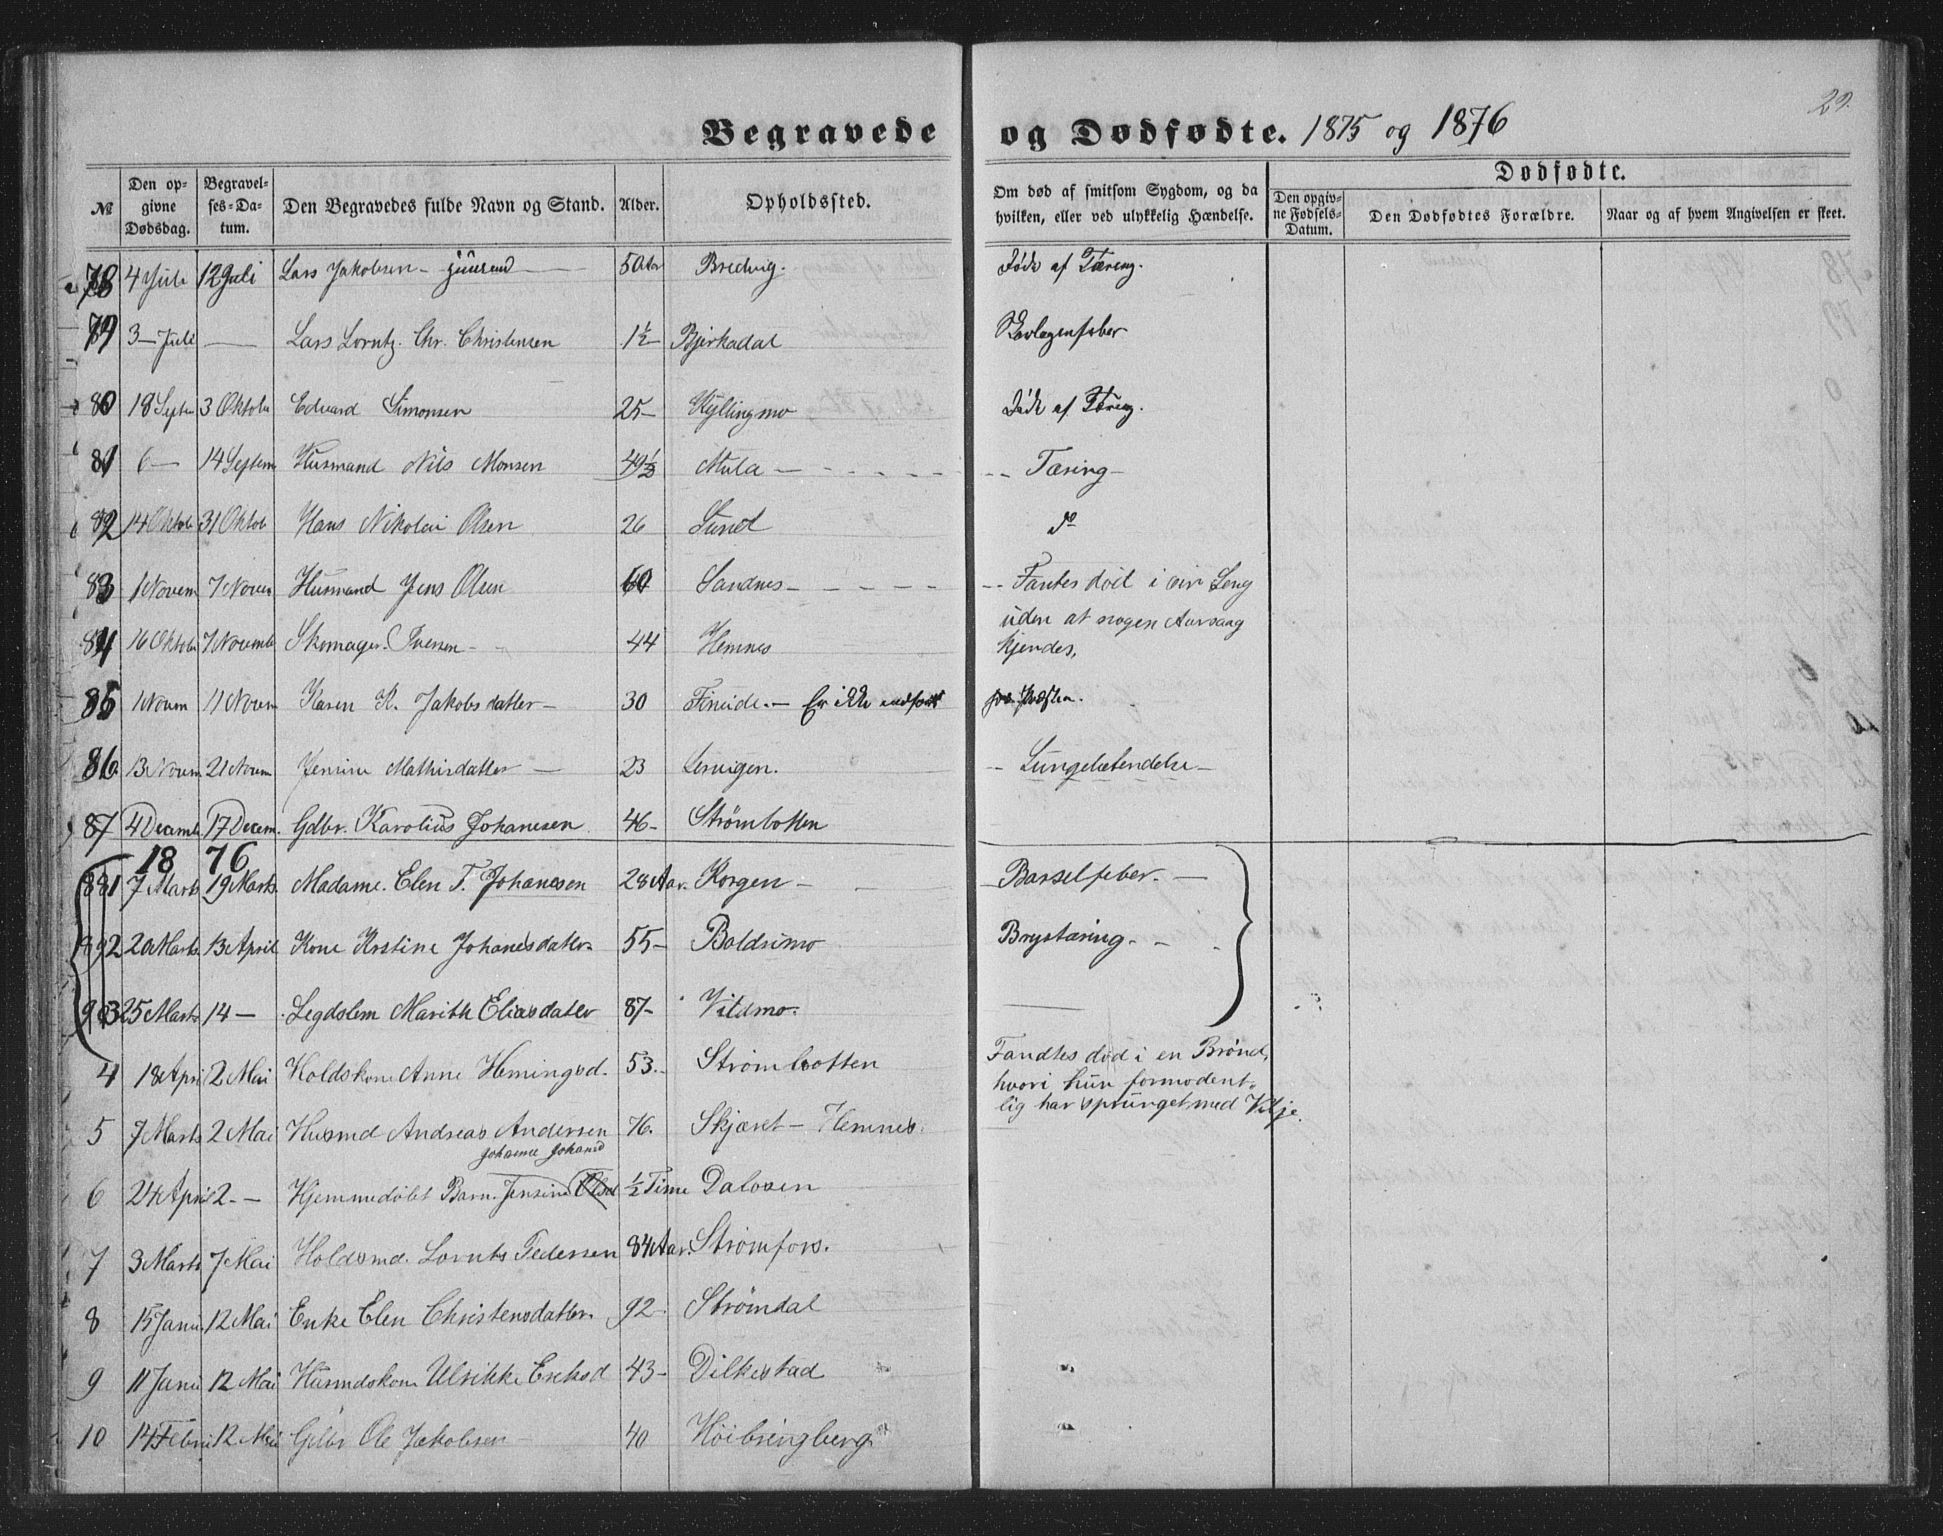 29.
Begravede og Dødfødte. 1875 og 1876
№
Den opgivne Dødsdag.
Begravelses-Datum.
Den Begravedes fulde Navn og Stand.
Alder.
Opholdssted.
Om død af smitsom Sygdom, og da hvilken, eller ved ulykkelig Hændelse.
Dødfødte.
Den opgivne Fødsels-Datum.
Den Dødfødtes Forældre.
Naar og af hvem Angivelsen er skeet.
78 4 Juli 12 Juli Lars Jakobsen 50 Aar Bredvig. Døde af Tæreng.
79 3 Juli — Lars Lorntz Chr. Christensen 1½ Bjerkadal Skarlagensfeber
80 18 Septe 3 Oktobe Edvard Simonsen 25 Kyllingmo Døde af Tæreng.
81 6 — 14 Septem Husmand Nils Monsen 49½ Mula — Tæring —
82 14 Oktobe 31 Oktob Hans Nikolai Olsen 26 Sund do
83 1 Novem 7 Novem Husmand Jens Olsen 60 Sandnes — Fantes död i sin Seng
uden at nogen Aarsaag
kjendes,
84 16 Oktobe 7 Novembe Skomager Iversen 44 Hemnes
85 1 Novem 11 Novem Karen K. Jakobsdatter — 30 Fineide. — Er ikke indført
86 13 Novem 21 Novem Jensine Mathisdatter — 23 Lervigen. Lungebetendelse —
87 4 Decembe 17 Decem. Gdbr. Karolius Johanesen 46 — Strømbotten
1876
88 1 7 Marts 19 Marts. Madame. Elen T. Johanesen 28 Aar. Korgen — Barselfeber. —
89 2 20 Marts 13 April Kone Kristine Johanesdatter 55 — Boldrimo Brystæring.
90 3 25 Marts 14 — Legdslem Marith Eliasdatter 87 — Vildmo.
4 18 Apri 2 Mai Holdskone Anne Hemingsd. 53. Strømbotten Fandtes død i en Brønd,
hvori hun formodent-
lig har sprunget med Vilje.
5 7 Marts 2 Mai Husmd Andreas Andersen 76. Skjæret — Hemnes.
Johanne Johansd
6 24 April 2 — Hjemmedøbt Barn. Jensine Olsd ½ Time Dalosen
7 3 Marts 7 Mai Holdsmd. Lornts Pedersen 84 Aar. Strømfors.
8 15 Janu. 12 Mai Enke Elen Christensdatter 92 — Strømdal
9 11 Janu 12 Mai Husmdskone Ulrikke Ereksd 43 — Dilkestad
10 14 Febru 12 Mai Gdbr Ole Jakobsen 40 Høibringberg